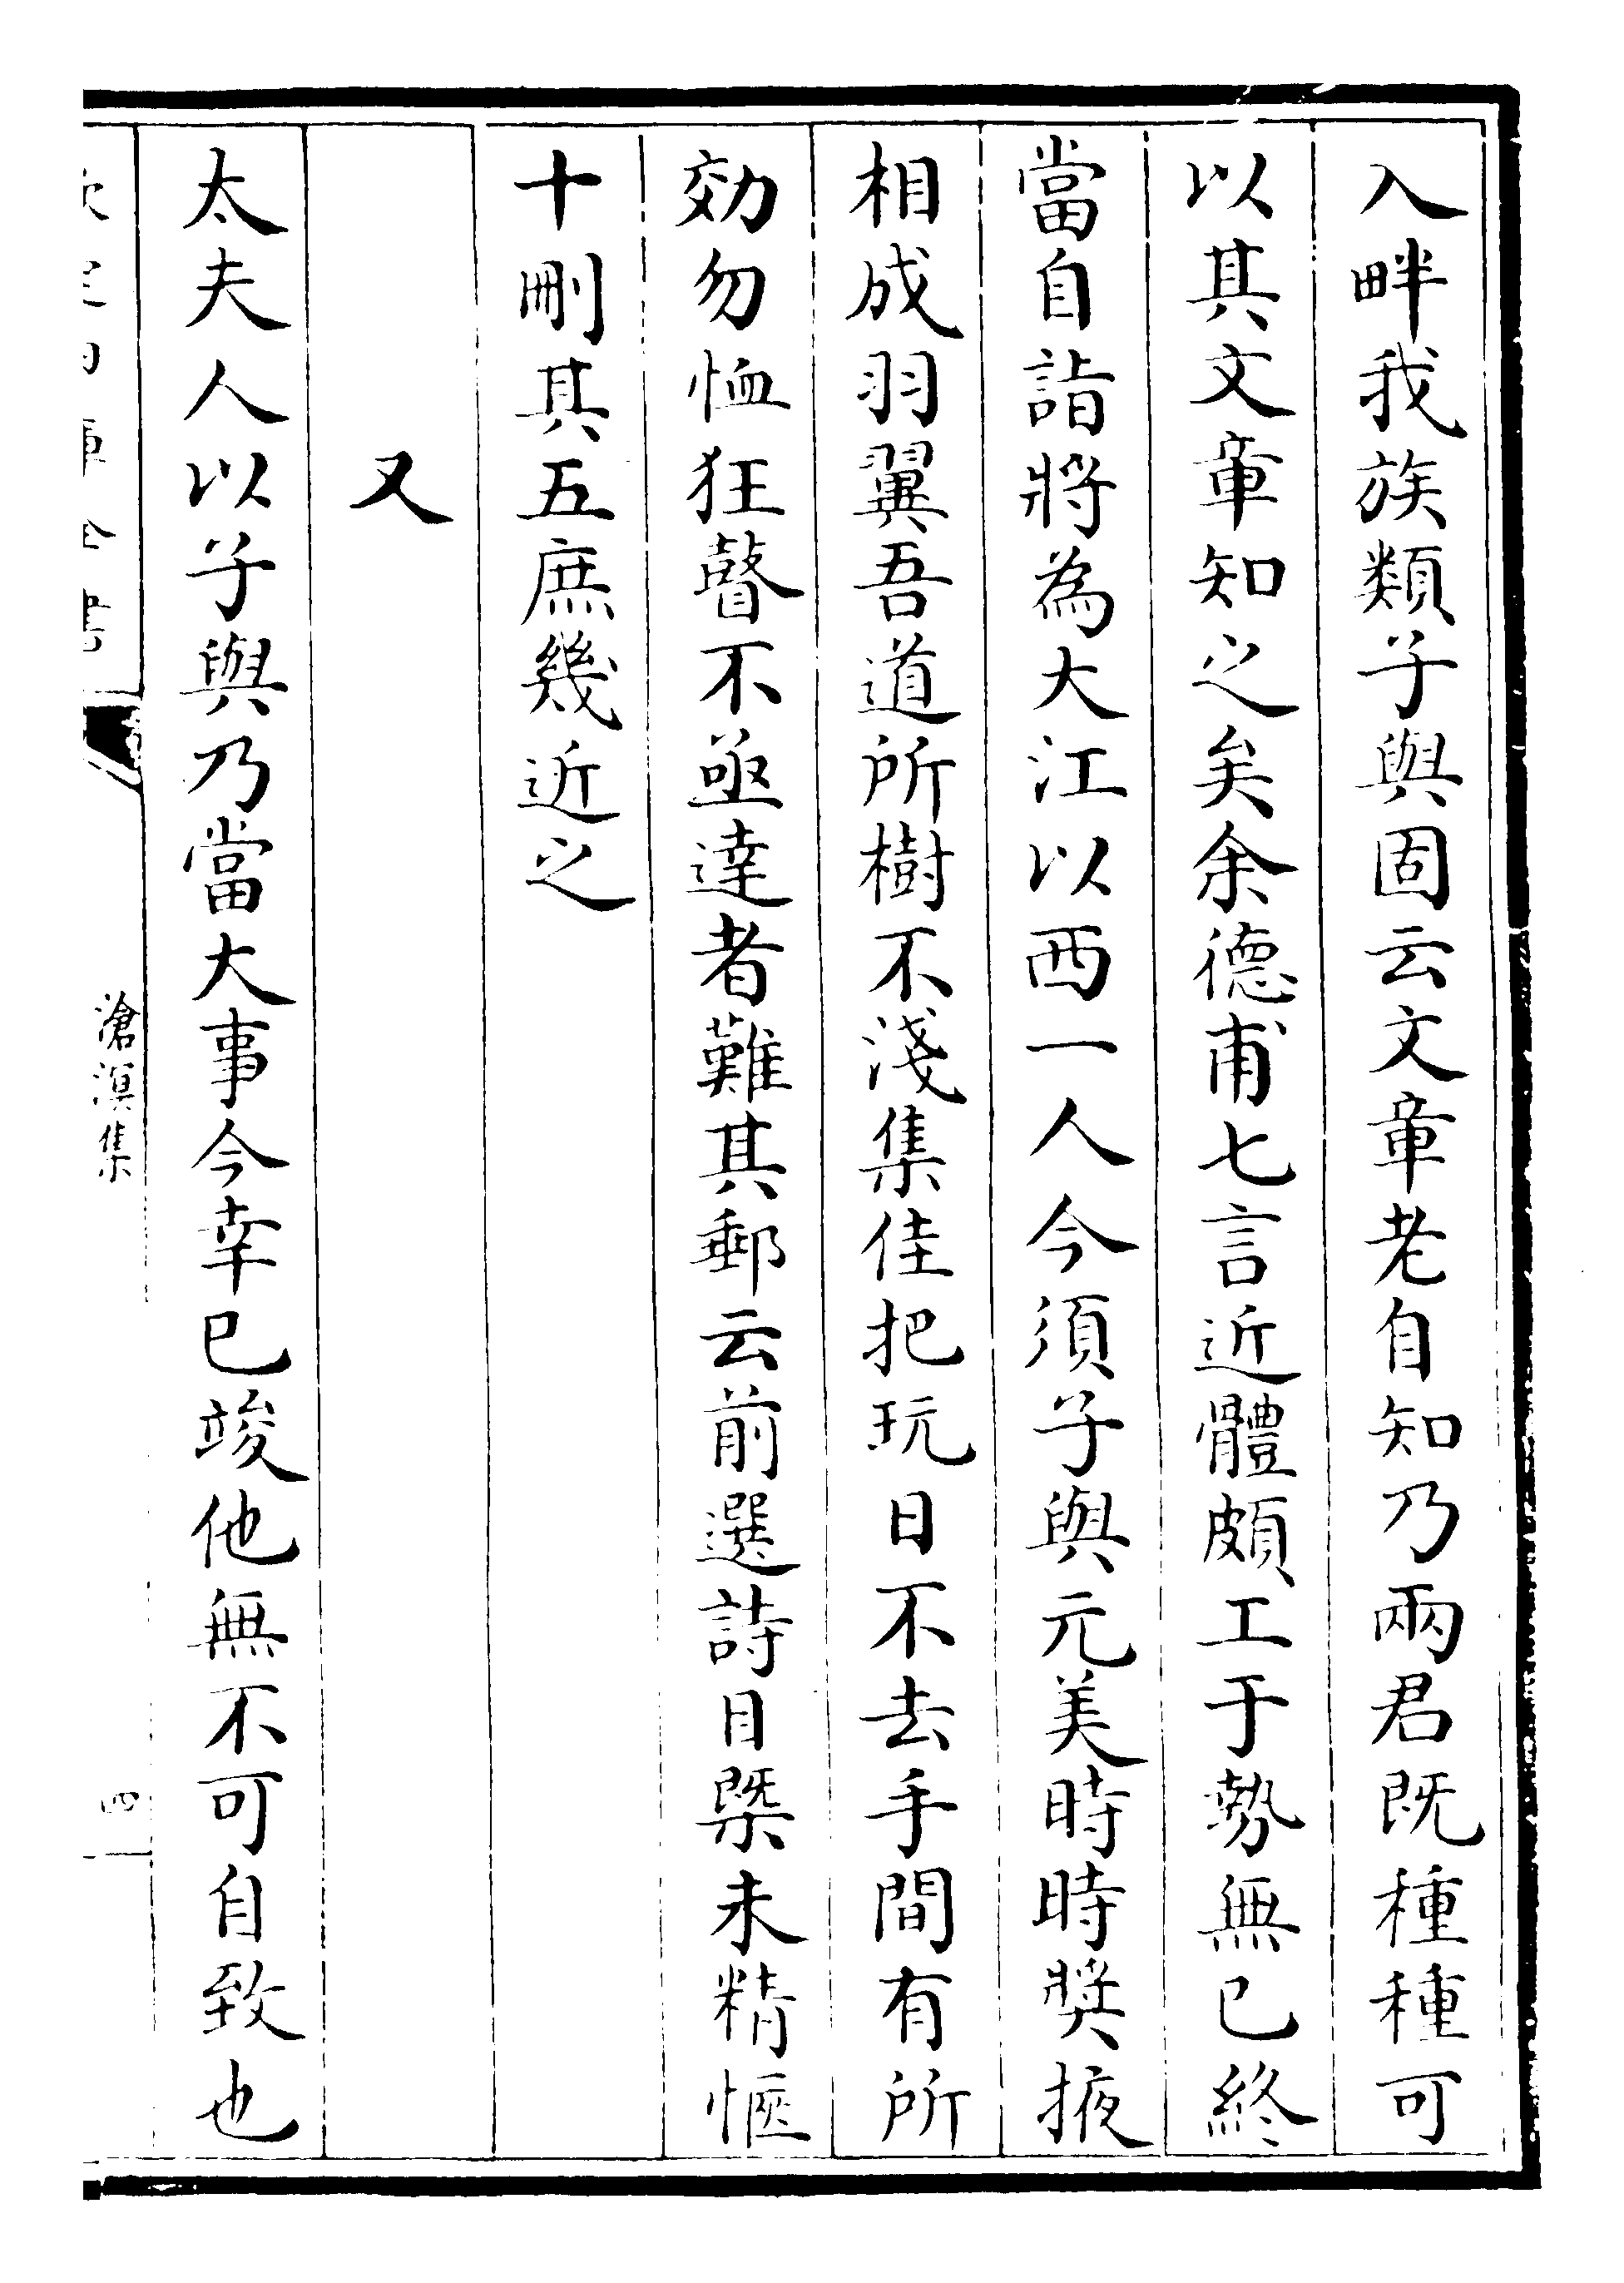 入畔我族類子與固云文章老自知乃兩君既種種可
以其文章知之矣余德甫七言近體頗工于勢無已終
當自詣將為大江以西一人今須子與元美時時獎掖
相成羽翼吾道所樹不淺集佳把玩日不去手間有所
効勿恤狂瞽不亟達者難其郵云前選詩目槩未精愜
十刪其五庶幾近之
又
太夫人以子與乃當大事今幸已竣他無不可自致也
滄溟集
四